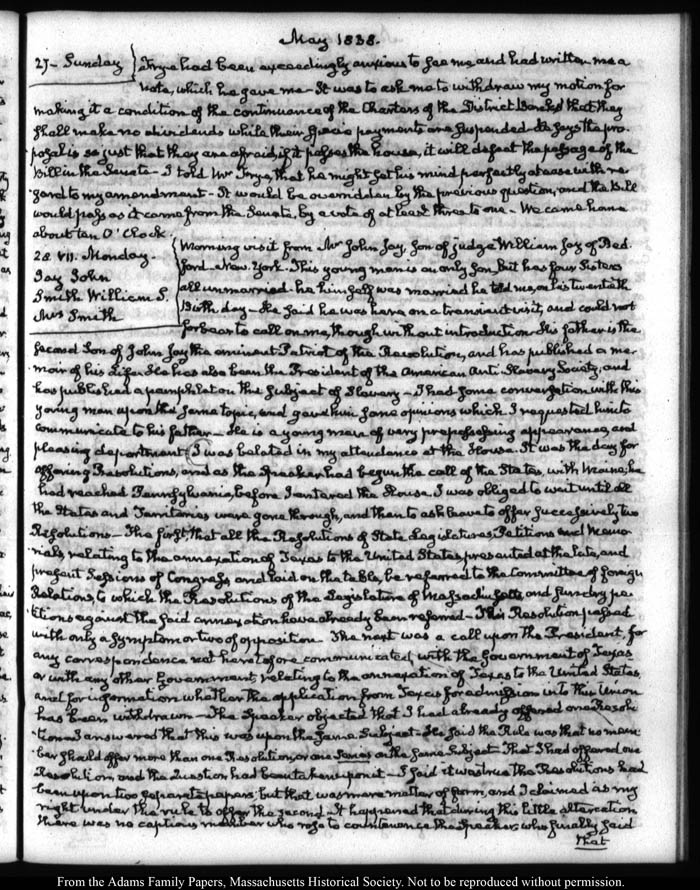 May 1838.
27 - Sunday } Frye had been exceedingly anxious to see me and had written me a
note, which he gave me - It was to ask me to withdraw my motion for
making it a condition of the continuance of the Charters of the District Banks that they
shall make no dividends while their specie payments are suspended - He says the pro-
posal is so just that they are afraid, if it passes the house, it will defeat the passage of the
Bill in the Senate - I told Mr Frye, that he might set his mind perfectly at ease with re-
gard to my amendment - It would be overridden by the previous question, and the Bill
would pass as it came from the Senate, by a vote of at least three to one - We came home
about ten O'Clock.
28. VII. Monday -
Jay John
Smith William S.
Mrs Smith
Morning visit from Mr John Jay, Son of judge William Jay of Bed-
ford - New York. This young man is an only Son, but has four Sisters
all unmarried - he himself was married he told me, on his twentieth
Birth day - He said he was here on a transient visit, and could not
forbear to call on me, though without introduction. His father is the
second Son of John Jay the eminent Patriot of the Revolution, and has published a me-
moir of his Life. He has also been the President of the American Anti Slavery Society, and
has published a pamphlet on the Subject of Slavery - I had some conversation with this
young man upon the same topic, and gave him some opinions which I requested him to
communicate to his father - He is a young man of very prepossessing appearance, and
pleasing deportment. I was belated in my attendance at the House. It was the day for
offering Resolutions, and as the Speaker had begun the call of the States, with Maine; he
had reached Pennsylvania, before I entered the House. I was obliged to wait until all
the States and Territories were gone through, and then to ask leave to offer successively two
Resolutions - The first, that all the Resolutions of State Legislatures, Petitions and Memo-
rials, relating to the annexation of Texas to the United States, presented at the late, and
present Sessions of Congress, and laid on the table, be referred to the Committee of foreign
Relations, to which the Resolutions of the Legislature of Massachusetts, and sundry pe-
titions against the said annexation have already been referred - This Resolution passed
with only a symptom or two of opposition. The next was a call upon the President, for
any correspondence not heretofore communicated, with the Government of Texas
or with any other Government, relating to the annexation of Texas to the United States,
and for information whether the application from Texas for admission into this Union
has been withdrawn - The Speaker objected that I had already offered one Resolu-
tion - I answered that this was upon the same Subject - He said the Rule was that no mem-
ber should offer more than one Resolution, or one Series on the same Subject - That I had offered one
Resolution, and the Question had been taken upon it - I said it was true the Resolutions had
been upon two separate papers, but that was mere matter of form, and I claimed as my
right under the rule to offer the second - It happened that during this little altercation
there was no captious member who rose to countenance the Speaker, who finally said
that
From the Adams Family Papers, Massachusetts Historical Society. Not to be reproduced without permission.